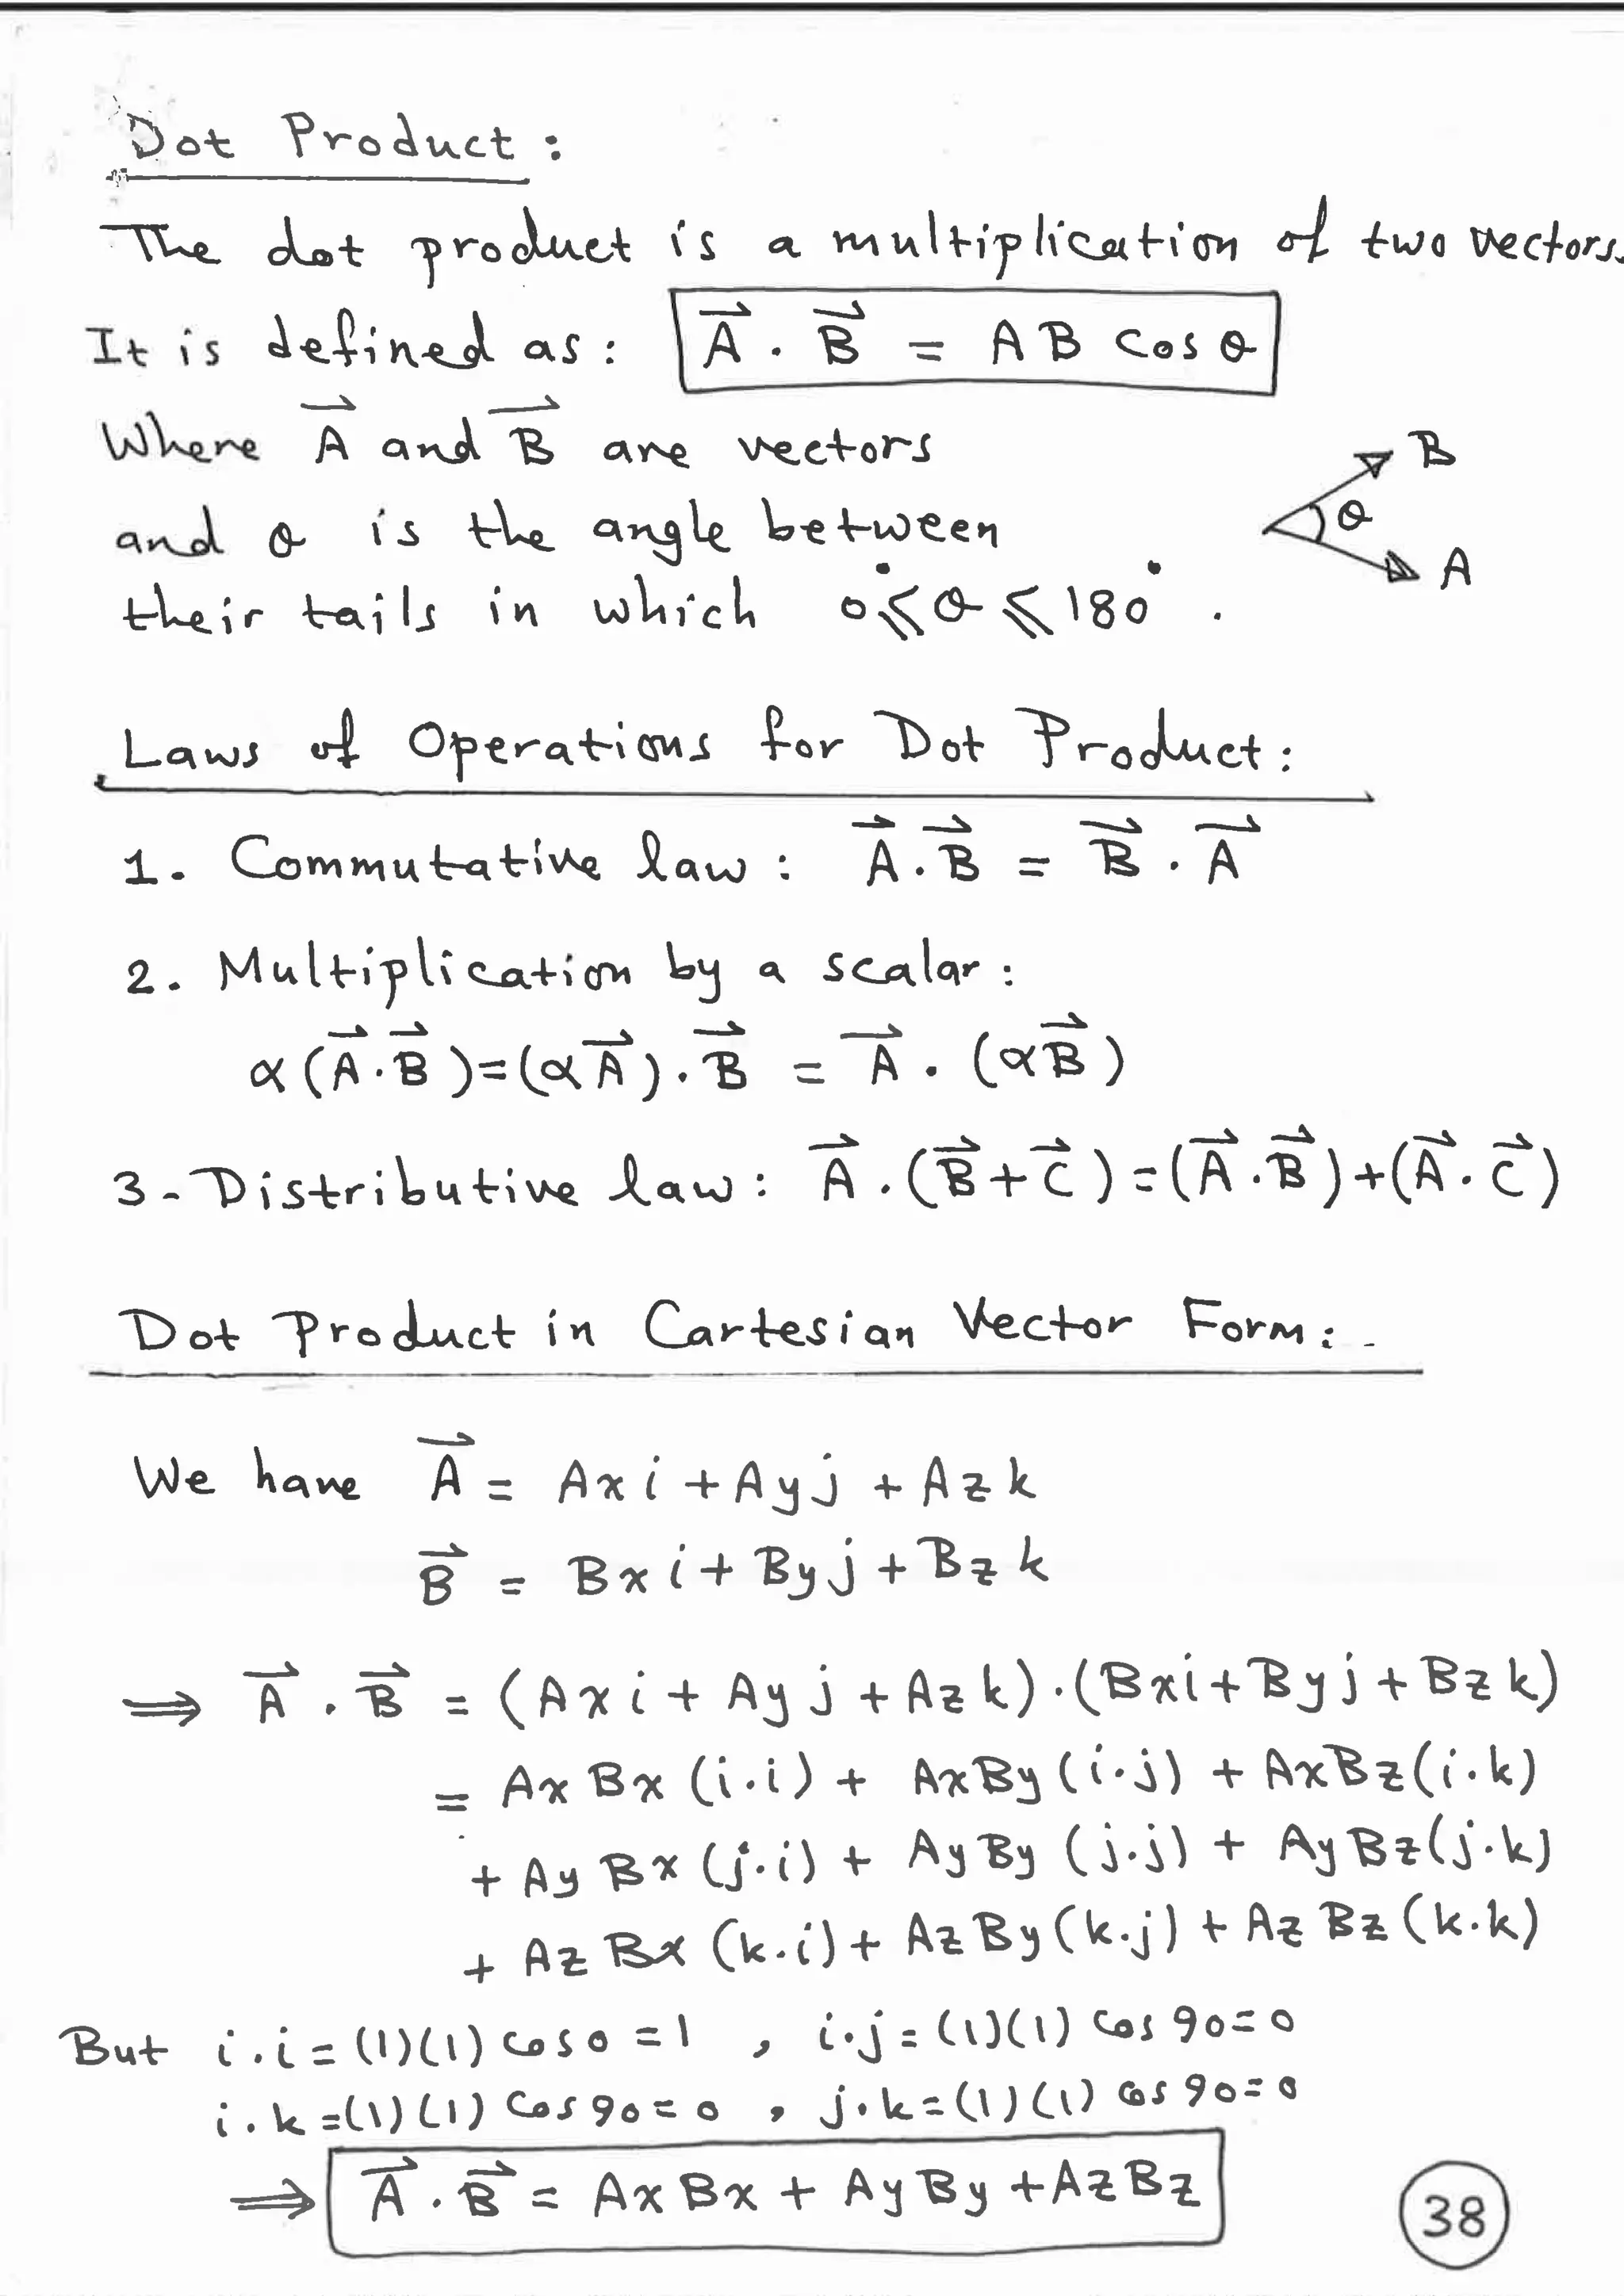 Dot Product :
The dot product is a multiplication of two vectors.
It is defined as : A⃗ . B⃗ = A B cos θ
Where A⃗ and B⃗ are vectors
B
and θ is the angle between
θ
A
their tails in which 0° ⩽ θ ⩽ 180° .
Laws of Operations for Dot Product :
1. Commutative law : A⃗ . B⃗ = B⃗ . A⃗
2. Multiplication by a scalar :
α ( A⃗ . B⃗ ) = ( α A⃗ ) . B⃗ = A⃗ . ( α B⃗ )
3 - Distributive law : A⃗ . ( B⃗ + C⃗ ) = ( A⃗ . B⃗ ) + ( A⃗ . C⃗ )
Dot Product in Cartesian Vector Form : -
We have A⃗ = Ax i + Ay j + Az k
B⃗ = Bx i + By j + Bz k
⟹ A⃗ . B⃗ = ( Ax i + Ay j + Az k ) . ( Bx i + By j + Bz k )
= Ax Bx ( i . i ) + Ax By ( i . j ) + Ax Bz ( i . k )
+ Ay Bx ( j . i ) + Ay By ( j . j ) + Ay Bz ( j . k )
+ Az Bx ( k . i ) + Az By ( k . j ) + Az Bz ( k . k )
But i . i = (1)(1) cos 0 = 1 , i . j = (1)(1) cos 90 = 0
i . k = (1)(1) cos 90 = 0 , j . k = (1)(1) cos 90 = 0
⟹ A⃗ . B⃗ = Ax Bx + Ay By + Az Bz
38